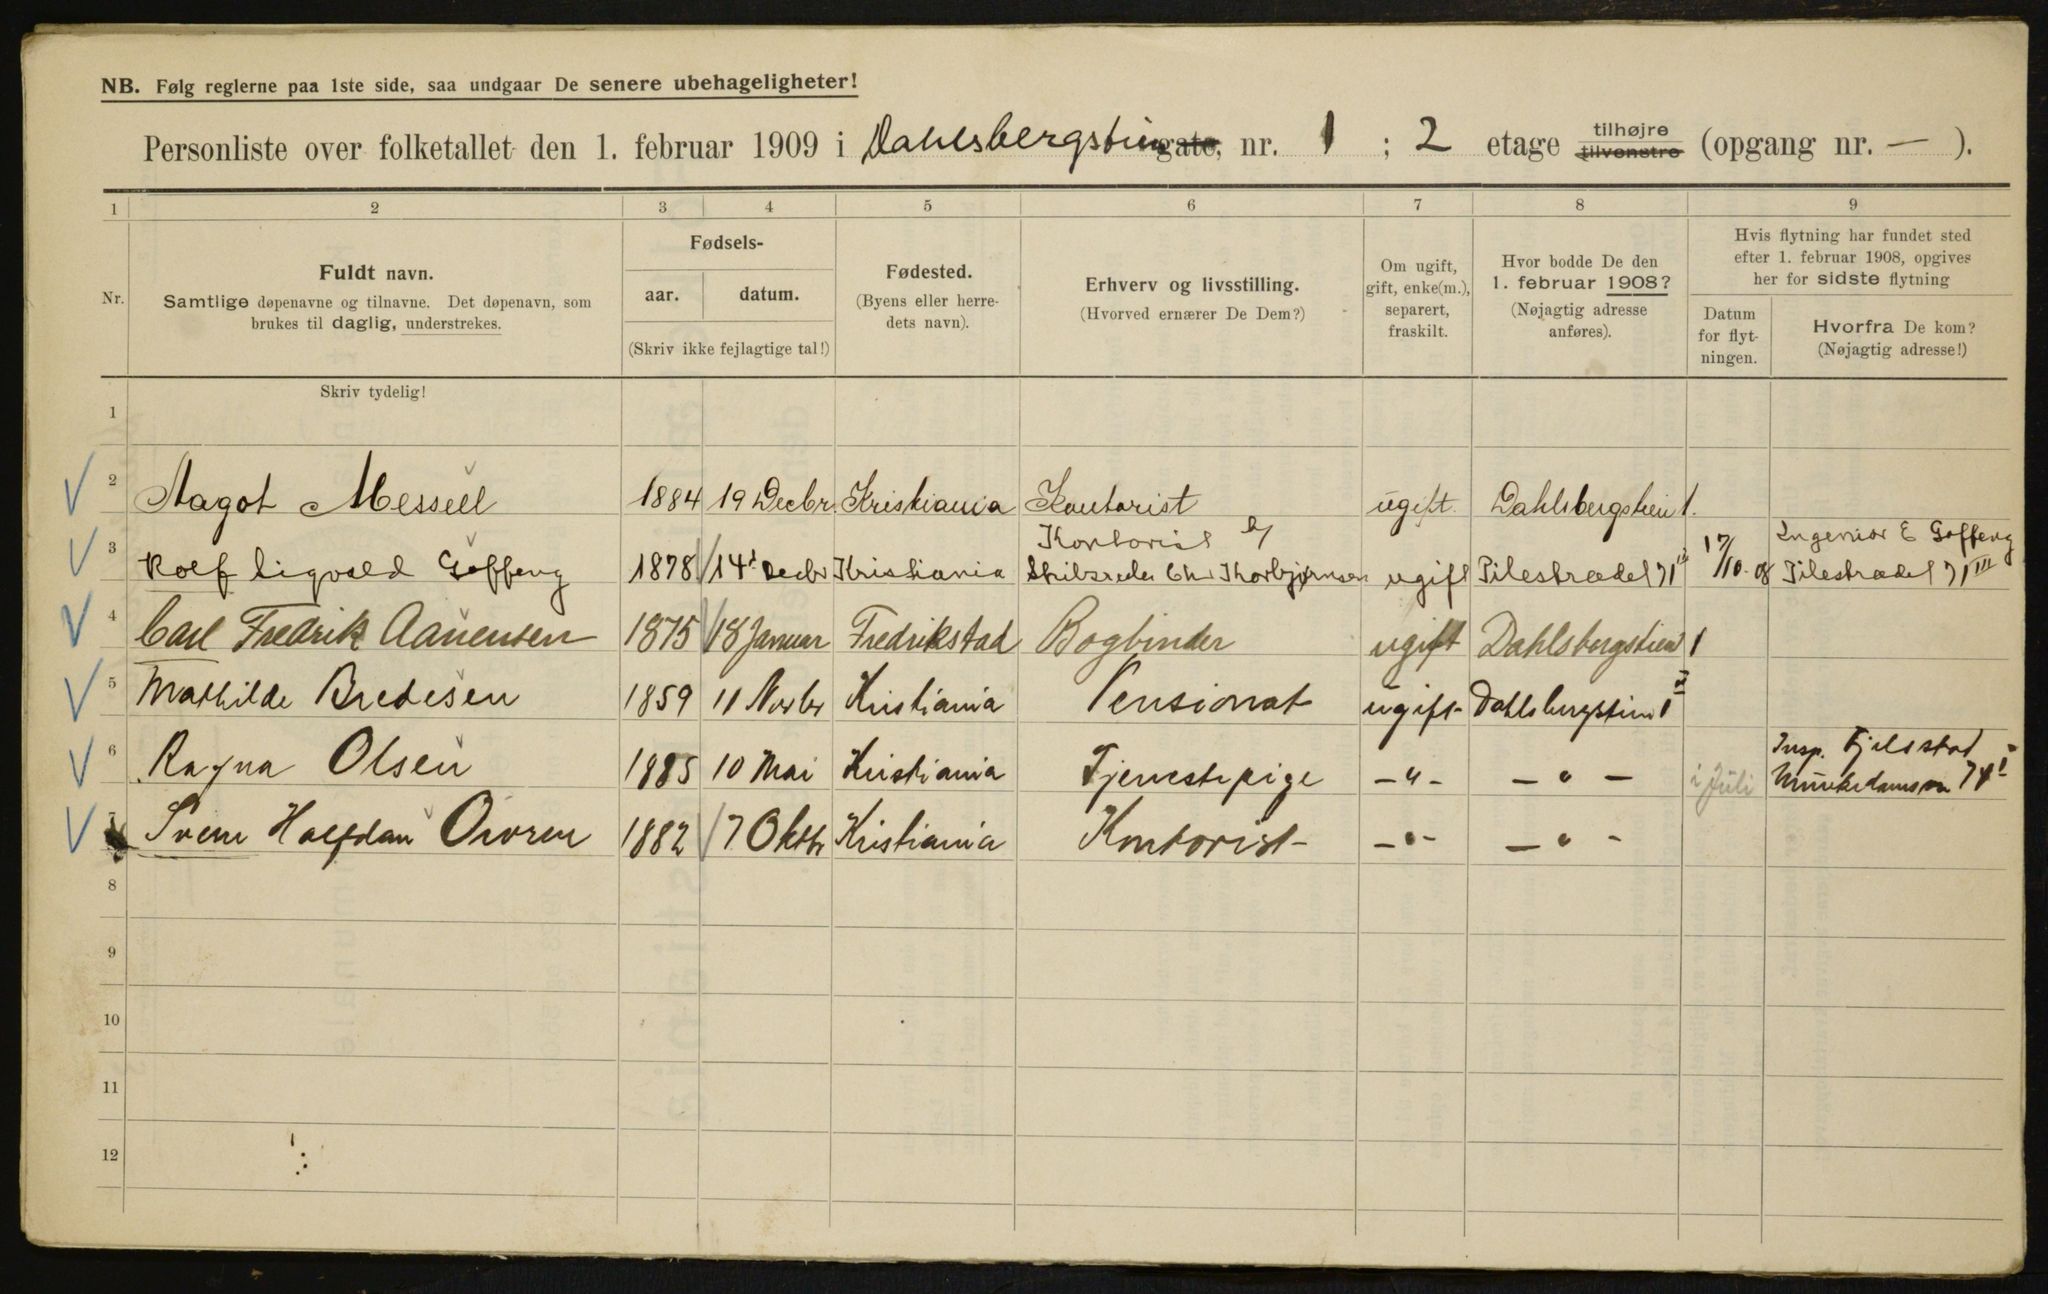 NB. Følg reglerne paa 1ste side, saa undgaar De senere ubehageligheter!
Personliste over folketallet den 1. februar 1909 i Dahlsbergstien gate, nr. 1 ; 2 etage tilhøjre tilvenstre (opgang nr. — ).
1 2 3 4 5 6 7 8 9
Nr.
Fuldt navn.
Samtlige døpenavne og tilnavne. Det døpenavn, som
brukes til daglig, understrekes.
Fødsels-
aar. datum.
(Skriv ikke fejlagtige tal!)
Fødested.
(Byens eller herre-
dets navn).
Erhverv og livsstilling.
(Hvorved ernærer De Dem?)
Om ugift,
gift, enke(m.),
separert,
fraskilt.
Hvor bodde De den
1. februar 1908?
(Nøjagtig adresse
anføres).
Hvis flytning har fundet sted
efter 1. februar 1908, opgives
her for sidste flytning
Datum
for flyt-
ningen.
Hvorfra De kom?
(Nøjagtig adresse!)
Skriv tydelig!
1
2 Aagot Messell 1884 19 Decbr. Kristiania Kontorist ugift. Dahlsbergstien 1.
3 Rolf Sigvald Goffeng 1878 14' Decbr Kristiania Kontorist Skibsreder Chr Thorbjørnsen ugift Pilestrædet 71 III 17/10-08 Ingeniør E Goffeng Pilestrædet 71 III
4 Carl Fredrik Aanensen 1875 18 Januar Fredrikstad Bogbinder ugift Dahlsbergstien 1
5 Mathilde Bredesen 1859 11 Novbr Kristiania Pensionat ugift Dahlsbergstien 1
6 Ragna Olsen 1885 10 Mai Kristiania Tjenestepige — " — — " — i Juli Insp. Fjelstad Munkedamsvn 74 I
7 Svein Halfdan 1882 7 Oktbr Kristiania Kontorist — " — — " —
8
9
10
11
12